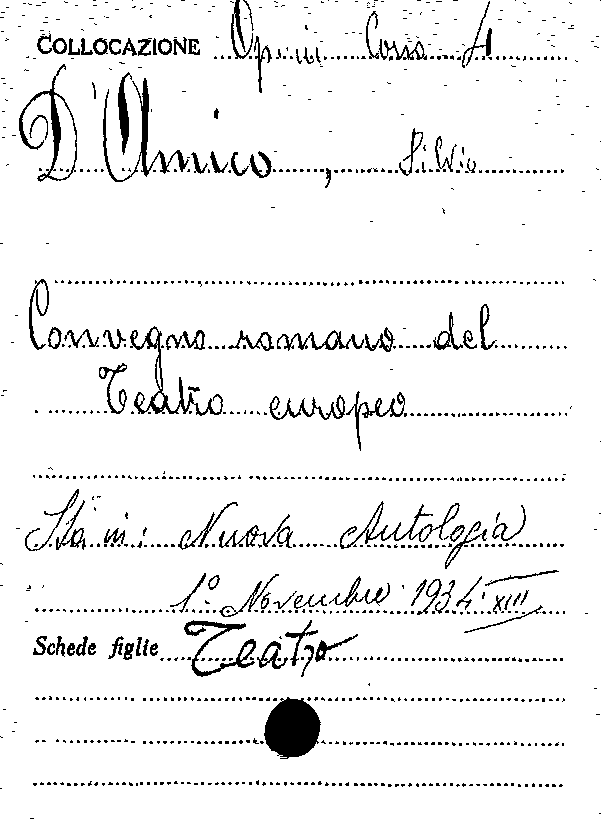 COLLOCAZIONE Opusc Corso 4
D'Amico, Silvio
Convegno romano del
Teatro europeo
Sta in: Nuova Antologia
1º Novembre 1934 XIII
Schede figlie Teatro